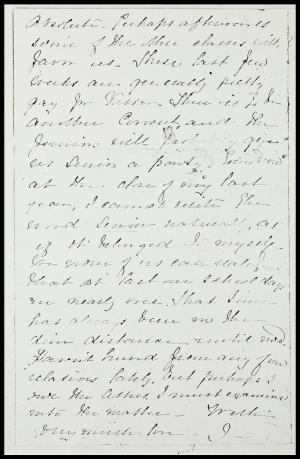 absolute. Perhaps afterwards
some of the other classes will
favor us. These last few
weeks are generally pretty
gay for Vassar. There is to be
another Concert, and the
Juniors will probably give
us Seniors a party.
at the close of my last
year, I cannot write the
word Senior naturally, as
if it belonged to myself.
For none of us can
that at last our School days
are nearly over. That time
has always been in the
dim distance until now.
Haven't heard from any of our
relatives lately, but perhaps I
owe the letters. I must examine
into the matter. With
very much love, J